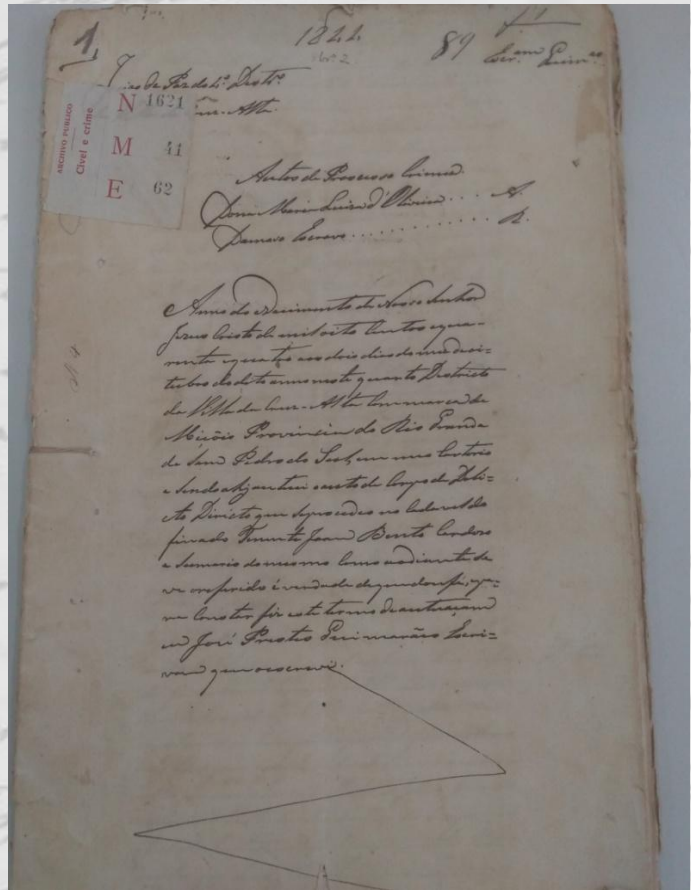 1
1844
89
f 1
Escr.am Guim.es
de Paz do 4.º Destr.º
Cruz-Alta.
ARCHIVO PUBLICO
Civel e crime
N 1621
M 41
E 62
Autos de Processo Crime
Dona Maria Luiza d'Oliveira .... A.
Damazo Escravo ............... R.
Anno do Nascimento de Nosso Senhor
Jesus Cristo de mil oito Centos e qua-
renta e quatro aos dois dias do mes de oi-
tubro do dito anno neste quarto Districto
da Villa da Cruz-Alta Commarca de
Miçõis Provincia do Rio Grande
de Sam Pedro do Sul, em meu Cartorio
e sendo ahy autuei o auto de Corpo de Deli-
cto Directo que se procedeo no Cadaver do
finado Tenente Joam Bento Cardozo
e Sumario do mesmo Como ao diante se
ve o referido é verdade de que dou fé, e pa-
ra Constar fiz este termo de autuaçam
eu José Prestes Guimarães Escri-
vam que o escrevi.